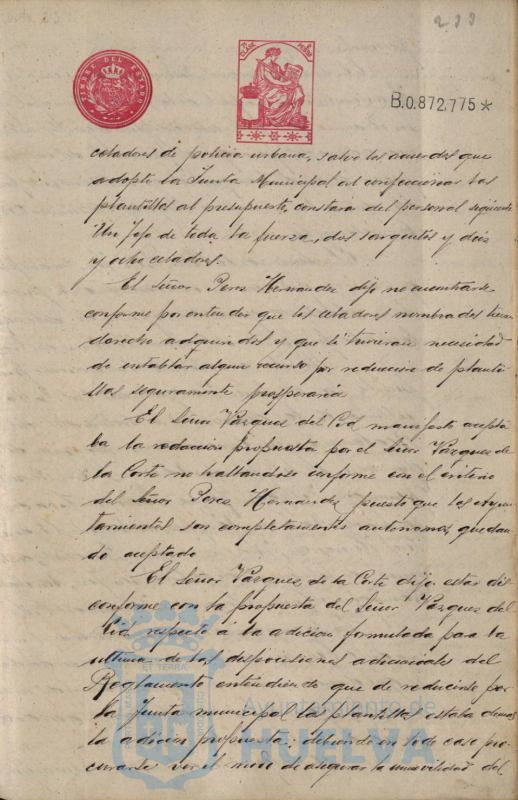 233
TIMBRE DEL ESTADO
B.0.872,775*
celadores de policia urbana, salvo los acuerdos que
adopte la Junta Municipal al confeccionar las
plantillas al presupuesto, constará del personal siguiente
Un Jefe de toda la fuerza, dos sargentos y diez
y ocho celadores.
El Señor Perez Hernandez dijo no encontrarse
conforme por entender que los celadores nombrados tienen
derecho adquiridos y que si tuvieran necesidad
de entablar algun recurso por reduccion de planti-
llas seguramente prosperaria
El Señor Vazquez del Cid manifestó acepta
ba la redaccion propuesta por el Señor Vazquez de
la Corte no hallandose conforme con el criterio
del Señor Perez Hernandez puesto que los Ayun-
tamientos son completamente autonomos, quedan
do aceptado
El Señor Vazquez de la Corte dijo estar dis
conforme con la propuesta del Señor Vazquez del
Cid respecto á la adicion formulada para la
ultima de las disposiciones adicionales del
Reglamento entendiendo que de reducirse por
la Junta municipal las plantillas estaba demas
la adicion propuesta; debiendo en todo caso pro-
curarse ver el modo de asegurar la inmovilidad del
ET TERRA
Ayuntamiento de
HUELVA